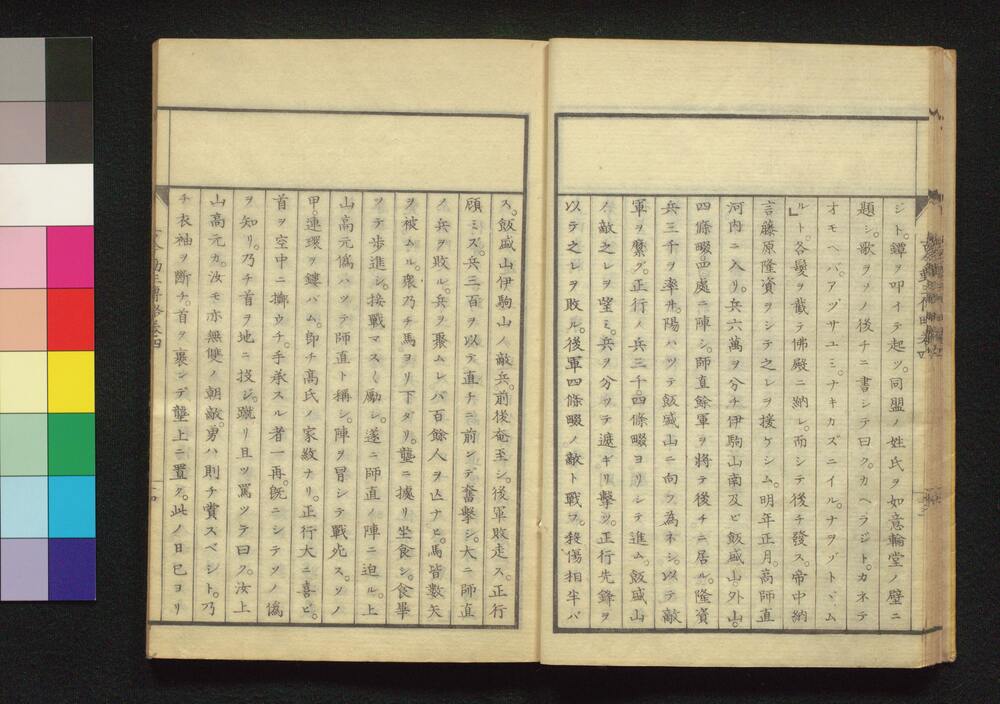 ジト。鐔ヲ叩イテ起ツ。同盟ノ姓氏ヲ如意輪堂ノ壁ニ
題シ。歌ヲソノ後チニ書シテ曰ク。カヘラジト。カネテ
オモヘバ。アヅサユミ。ナキカズニイル。ナヲゾトヾム
ル」ト。各鬘ヲ截テ佛殿ニ納レ。而シテ後チ發ス。帝中納
言藤原隆資ヲシテ之レヲ援ケシム。明年正月。高師直
河内ニ入リ。兵六萬ヲ分チ伊駒山南及ビ飯盛山。外山。
四條畷四處ニ陣シ。師直餘軍ヲ將テ後チニ居ル。隆資
兵三千ヲ率ヰ。陽ハツテ飯盛山ニ向フ為ネシ。以テ敵
軍ヲ縻グ。正行ノ兵三千。四條畷ヨリシテ進ム。飯盛山
ノ敵之レヲ望ミ。兵ヲ分ツテ遮ギリ擊ツ。正行先鋒ヲ
以テ之レヲ敗ル。後軍四條畷ノ敵ト戰フ。殺傷相半バ
ス。飯盛山伊駒山ノ敵兵。前後奄至シ。後軍敗走ス。正行
顧ミズ。兵三百ヲ以テ直チニ前ンデ奮擊シ。大ニ師直
ノ兵ヲ敗ル。兵ヲ聚ムレバ百餘人ヲ亾ナヒ。馬皆數矢
ヲ被ムル。衆乃チ馬ヨリ下ダリ。壟ニ據リ坐食シ。食畢
ツテ歩進シ。接戰マス〱勵シ。遂ニ師直ノ陣ニ迫ル。上
山高元僞ハツテ師直ト稱シ。陣ヲ冒シテ戰死ス。ソノ
甲。連環ヲ鏤バム。即チ高氏ノ家紋ナリ。正行大ニ喜ビ。
首ヲ空中ニ擲ウチ。手承スル者一再。旣ニシテソノ僞
ヲ知リ。乃チ首ヲ地ニ投シ。蹴リ且ツ罵ツテ曰ク。汝上
山高元カ。汝モ亦無雙ノ朝敵。勇ハ則チ賞スベシト。乃
チ衣袖ヲ斷チ。首ヲ裹ンデ壟上ニ置ク。此ノ日巳ヨリ